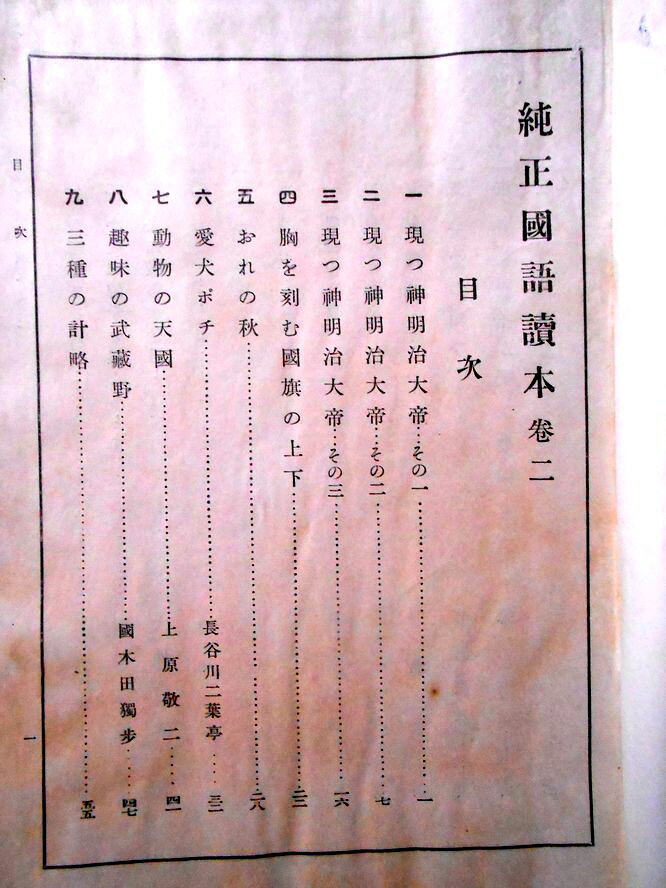 純正國語讀本 卷二
目次
一 現つ神明治大帝…その一……一
二 現つ神明治大帝…その二……七
三 現つ神明治大帝…その三……一六
四 胸を刻む國旗の上下……二二
五 おれの秋……二八
六 愛犬ポチ……長谷川二葉亭……三二
七 動物の天國……上原敬二……四一
八 趣味の武藏野……國木田獨步……四七
九 三種の計略……五五
目次
一